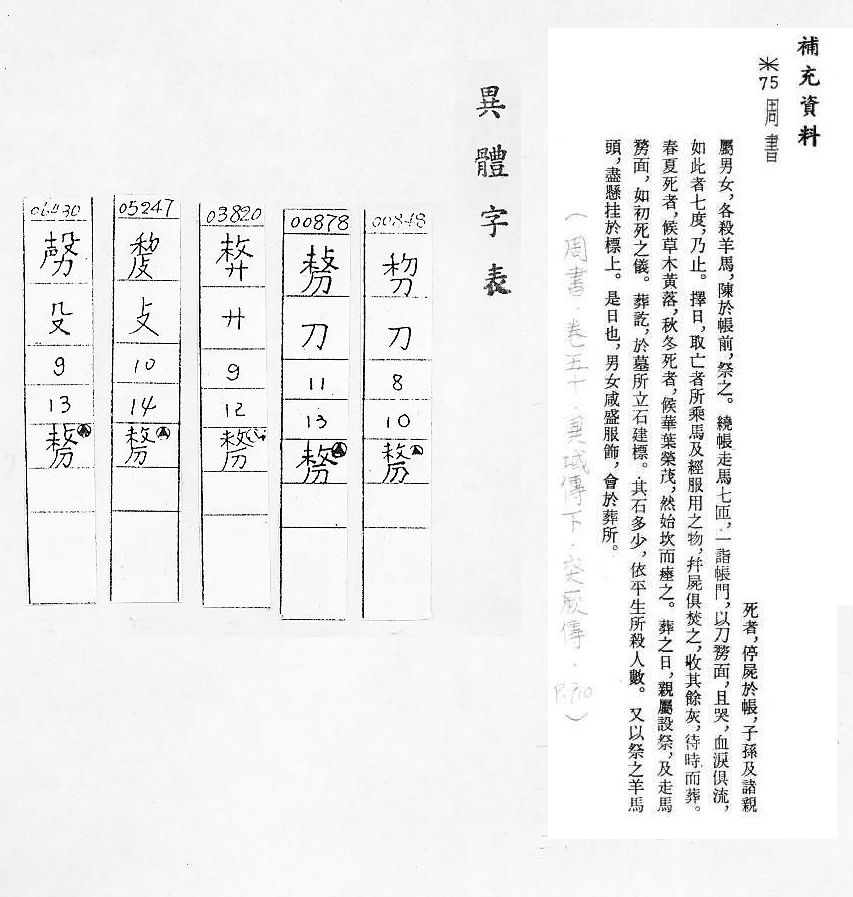 補充資料
※75 周書
死者,停屍於帳,子孫及諸親
屬男女,各殺羊馬,陳於帳前,祭之。繞帳走馬七匝,一詣帳門,以刀剺面,且哭,血淚俱流,
如此者七度,乃止。擇日,取亡者所乘馬及經服用之物,幷屍俱焚之,收其餘灰,待時而葬。
春夏死者,候草木黃落,秋冬死者,候華葉榮茂,然始坎而瘞之。葬之日,親屬設祭,及走馬
剺面,如初死之儀。葬訖,於墓所立石建標。其石多少,依平生所殺人數。又以祭之羊馬
頭,盡懸挂於標上。是日也,男女咸盛服飾,會於葬所。
(周書.卷五十.異域傳下.突厥傳.P.910)
異體字表
00848
刀
8
10
剺
00878
刀
11
13
剺
03820
廾
9
12
剺
05247
攴
10
14
剺
06430
殳
9
13
剺